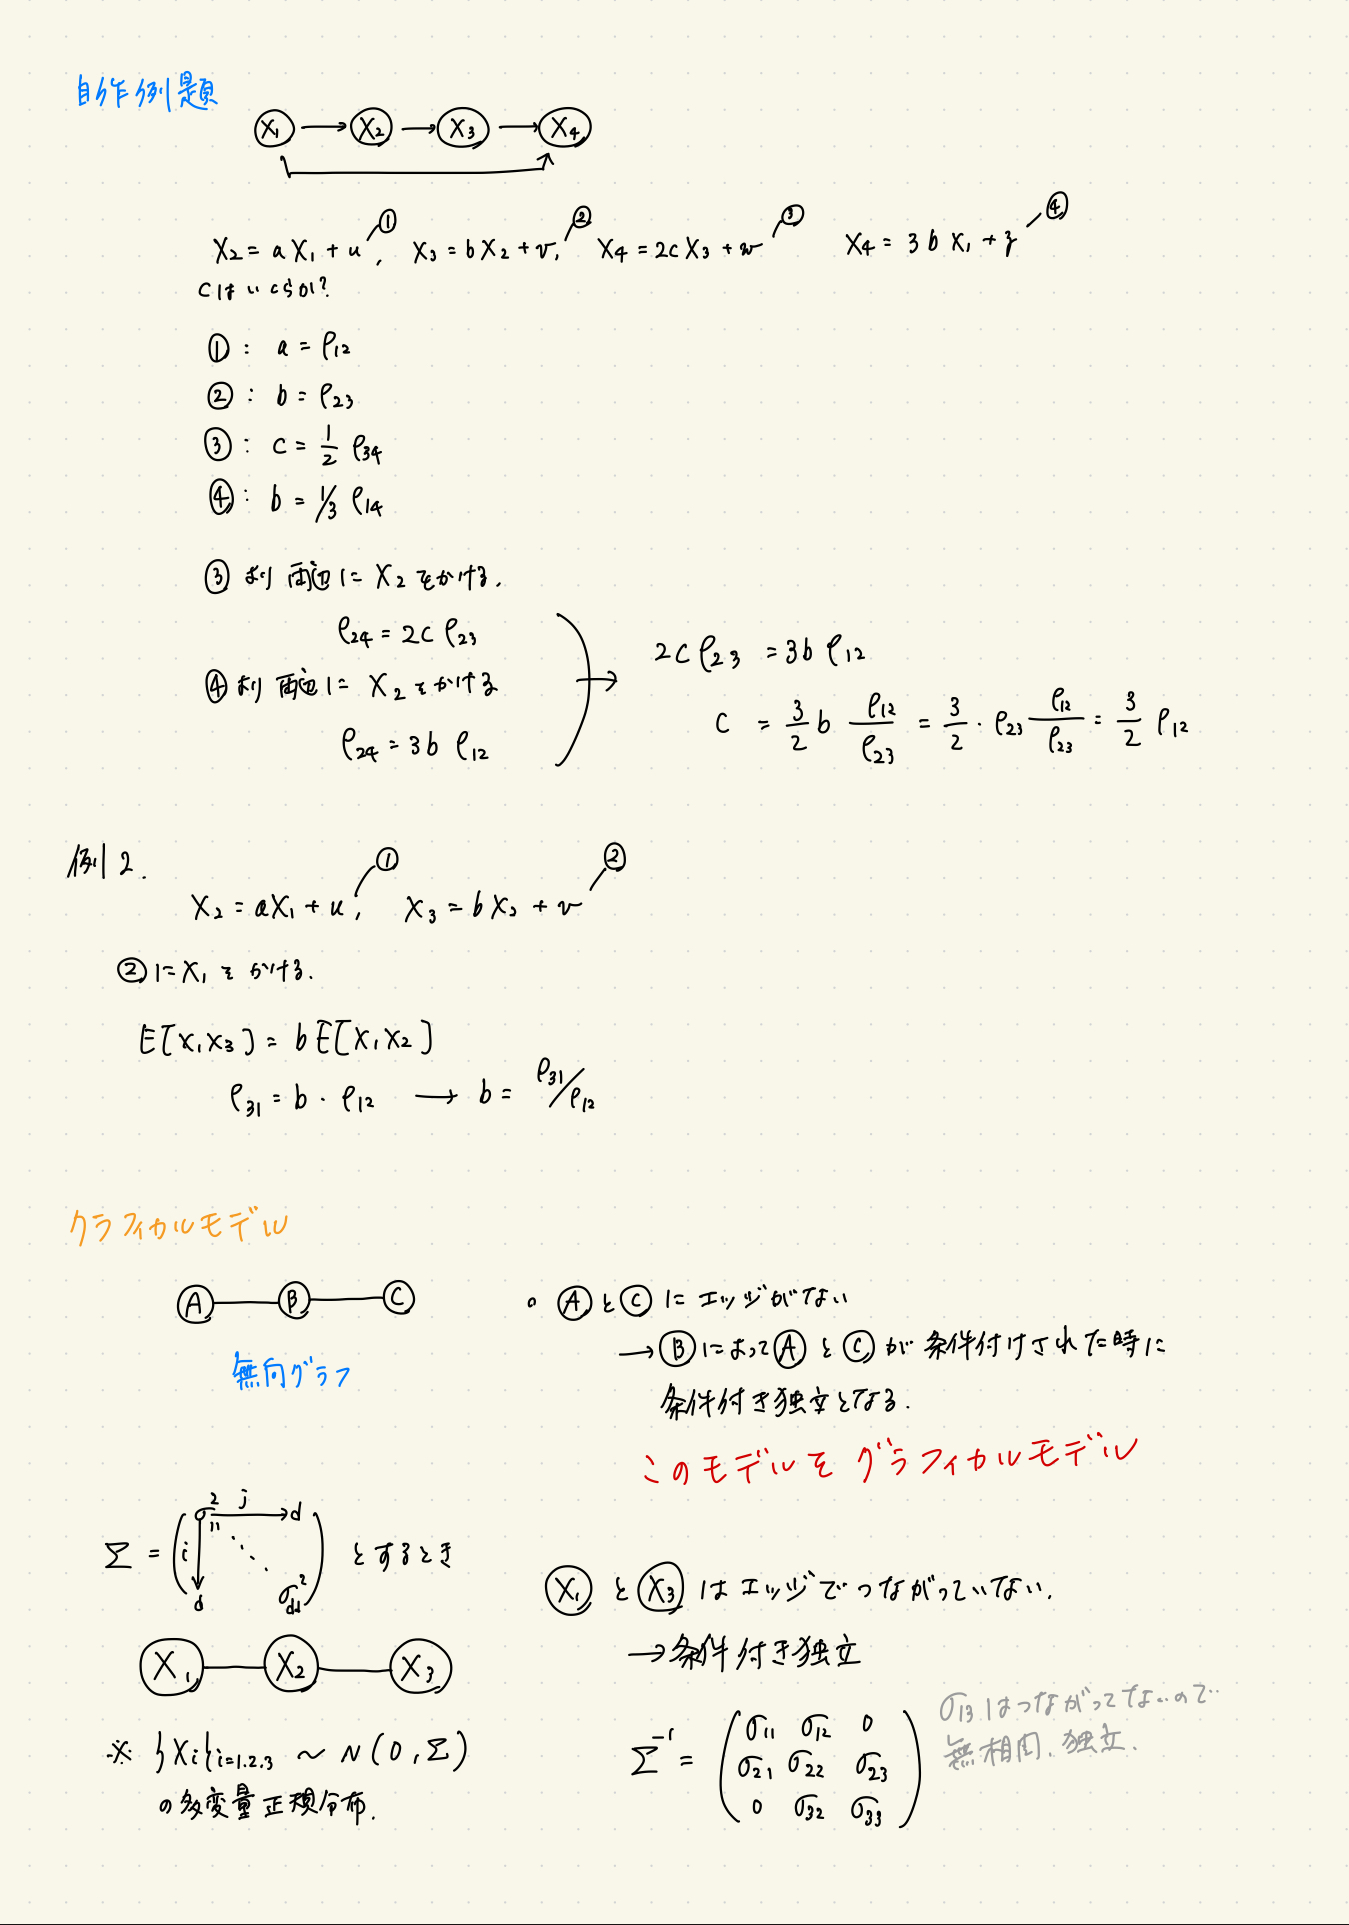 自作例題
X1 → X2 → X3 → X4
X2 = aX1 + u ①, X3 = bX2 + v ②, X4 = 2cX3 + w ③ X4 = 3bX1 + z ④
Cはいくらか?
① : a = ρ12
② : b = ρ23
③ : c = 1/2 ρ34
④ : b = 1/3 ρ14
③ より 両辺に X2 をかける.
ρ24 = 2c ρ23
④ より 両辺に X2 をかける
ρ24 = 3b ρ12
2cρ23 = 3bρ12
c = 3/2 b ρ12/ρ23 = 3/2 · ρ23 ρ12/ρ23 = 3/2 ρ12
例2.
X2 = aX1 + u ①, X3 = bX2 + v ②
② に X1 を かける.
E[X1X3] = bE[X1X2]
ρ31 = b · ρ12 → b = ρ31/ρ12
クラフィカルモデル
A B C
無向グラフ
。 A と C に エッジがない
→ B によって A と C が 条件付けされた時に
条件付き独立となる.
このモデルを グラフィカルモデル
Σ = ( σ²11 j → d i ↓ d ⋱ σ²dd ) とするとき
X1 X2 X3
※ {Xi}i=1.2.3 ~ N(0, Σ)
の多変量正規分布.
X1 と X3 は エッジでつながっていない.
→ 条件付き独立
Σ⁻¹ = ( σ11 σ12 0
σ21 σ22 σ23
0 σ32 σ33 )
σ13はつながってないので
無相関、独立.